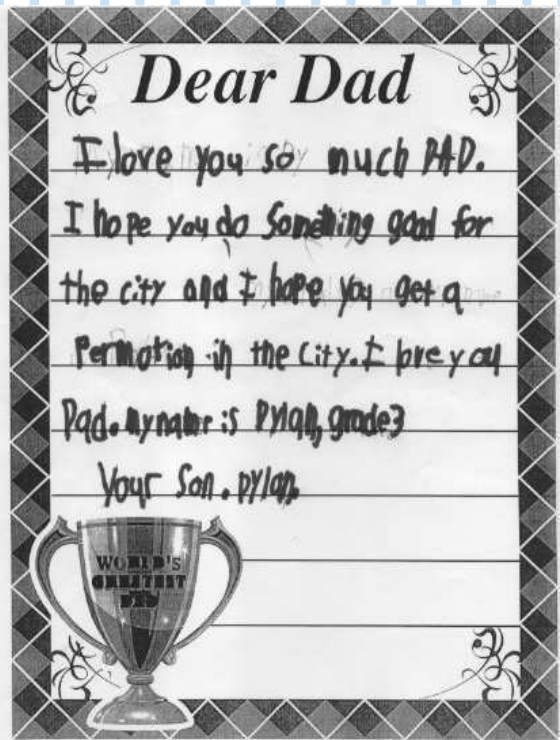 Dear Dad
I love you so much DAD.
I hope you do Something good for
the city and I hope you get a
Permotion in the City. I love you
Dad. my name is Dylan, grade 3
Your Son. Dylan.
WORLD'S
GREATEST
DAD